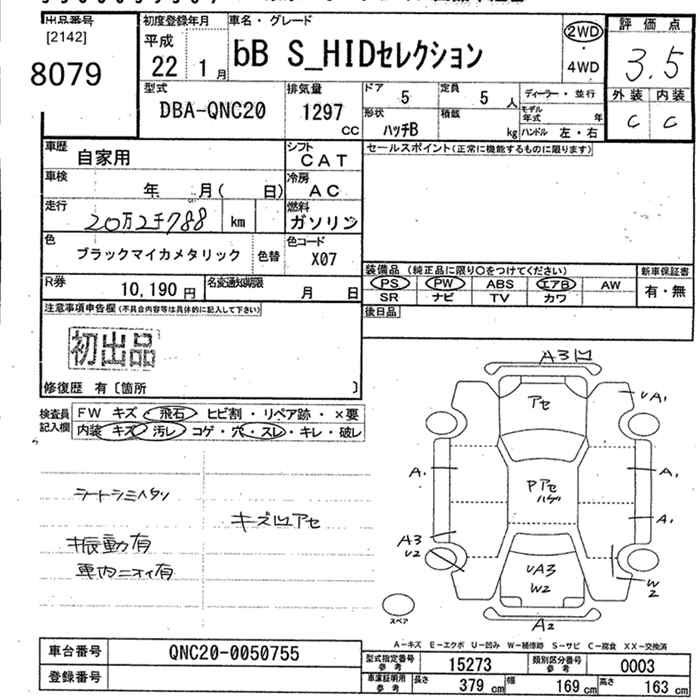 出品番号
[2142]
8079
初度登録年月
平成
22 1月
車名・グレード
bB S_HIDセレクション
2WD
・
4WD
評価点
3.5
外装 内装
C C
型式
DBA-QNC20
排気量
1297
CC
ドア
5
定員
5 人
ディーラー・並行
形状
ハッチB
積載
kg
モデル年式 年
ハンドル 左・右
車歴
自家用
シフト
CAT
セールスポイント(正常に機能するものに限ります)
車検
年 月( 日)
冷房
AC
走行
20万2千788 km
燃料
ガソリン
色
ブラックマイカメタリック
色替
色コード
X07
装備品 (純正品に限り○をつけてください)
新車保証書
PS PW ABS エアB AW
SR ナビ TV カワ
有・無
R券
10,190 円
名変通知期限
月 日
後日品
注意事項申告欄(不具合内容等は具体的に記入して下さい)
初出品
修復歴 有〔箇所 〕
検査員
記入欄
FW キズ・飛石・ヒビ割・リペア跡・×要
内装 キズ・汚レ・コゲ・穴・スレ・キレ・破レ
シートシミハタン
振動有
車内ニオイ有
キズ凹アセ
A3凹
アセ
UA1
A1
PアセハゲA1
A3
U2
UA3
W2
W2
A2
スペア
A-キズ E-エクボ U-凹み W-補修跡 S-サビ C-腐食 XX-交換済
車台番号
QNC20-0050755
登録番号
型式指定番号
参考
15273
類別区分番号
参考
0003
車庫証明用
参考
長さ
379 cm
幅
169 cm
高さ
163 cm